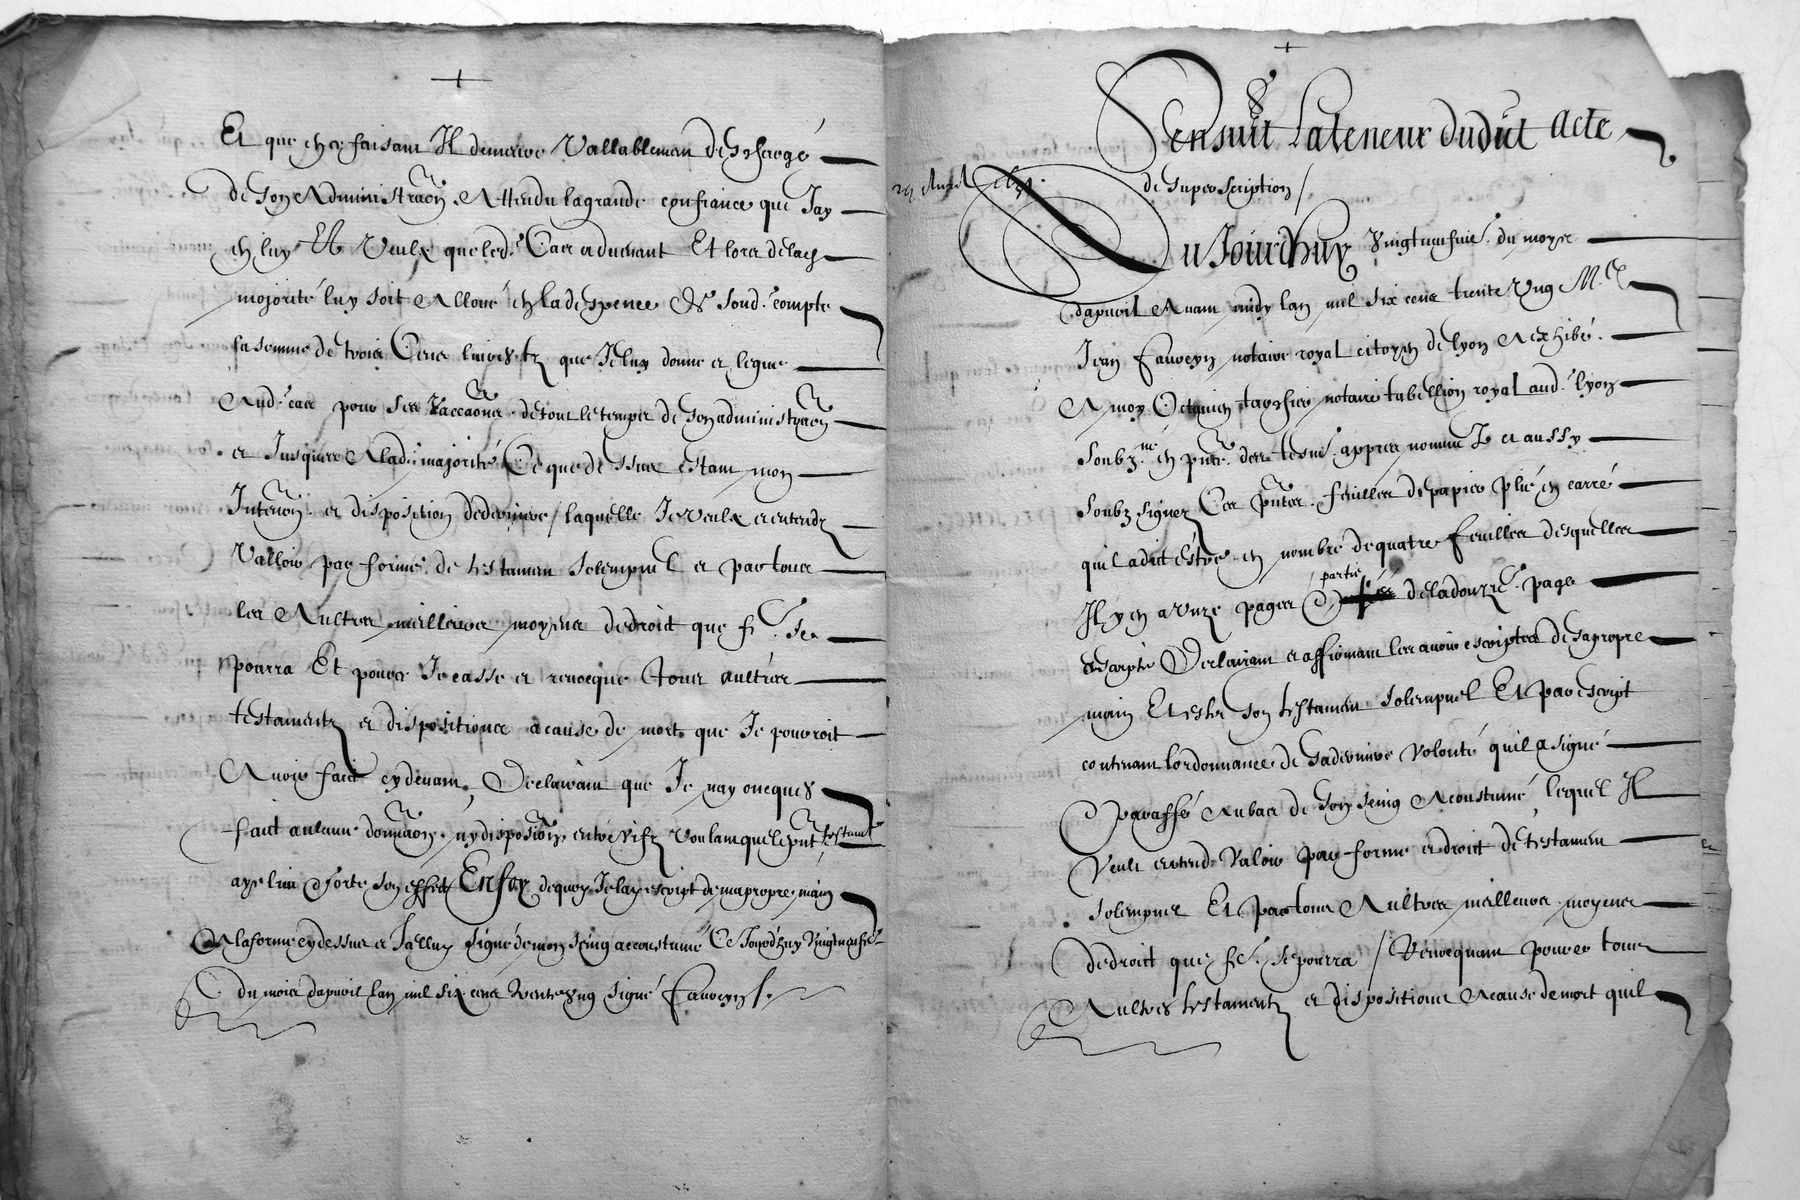 Et que en ce faisant Il demeure Vallablement deschargé
de son Administraõn. Attendu la grande confiance que Jay
en luy Et Veulx que led. Cas advenant Et lors de lad.
majorité luy soit Alloué en la despence de sond. compte
la somme de trois Cens livres tz que Je luy donne et legue
Aud. cas pour ses Vaccaõns de tout le temps de son administraõn
et Jusques A lad. majorité Ce que dessus estant mon
Intenõn et disposition de derniere / laquelle Je veulx et entendz
Valloir par forme de testament solempnel et par tous
les Aultres meilleurs moyens de droict que fe. se
pourra Et pource Je casse et revocque Tous aultres
testamentz et dispositions a cause de mort que Je pourroit
Avoir faict cy devant, Declairant que Je nay oncques
faict aulcune donnaõn ny disposiõn entre vifz voulant que le pnt testamt
aye lieu & sorte son effect En foy de quoy Je lay escript de ma propre main
A la forme cy dessus et Jalluy signé de mon seing accoustumé Ce Jourdhuy Vingtneufie.
du mois dapvril lan mil six cens trente ung signé Faureyn /.
Sensuit La teneur dudit Acte
de superscription /
29 Avril 1631.
Du Jourdhuy Vingtneufvie. du moys
dapvril Avant midy lan mil six cens trente Ung Me
Jean Faureyn notaire royal citoyen de lyon A exhibé
A moy notaire tabellion royal aud. lyon
soubz.né en pnce. des tesm. appres nommez et aussy
soubz signez Ces pntes. feuilles de papier plié en carré
quil a dict estre en nombre de quatre feuilles desquelles
Il y en a unze pages & partie de la douze. page
escripte Declairant et affirmant les avoir escriptes de sa propre
main Et estre son testament solempnel Et par escript
contenant lordonnance de sa derniere volonté quil a signé
& paraffé Au bas de son seing Acoustumé, lequel Il
Veult entend Valoir par forme et droict de testament
solempnel Et par tous Aultres meilleurs moyens
de droict que fe. se pourra / Revocquant pource tous
Aultres testamentz et dispositions A cause de mort quil